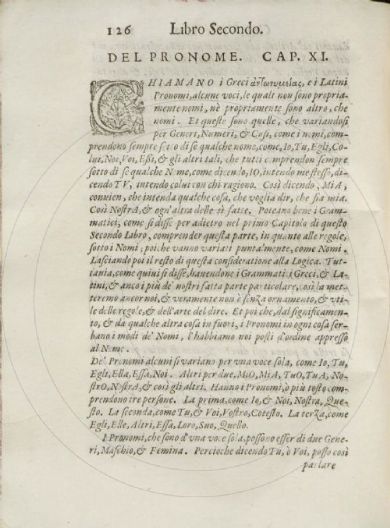 126 Libro Secondo.
DEL PRONOME. CAP. XI.
CHIAMANO i Greci ἀντωνυμίας, e i Latini
Pronomi, alcune voci, le quali non sono propria-
mente nomi, nè propriamente sono altro, che
nomi. Et queste sono quelle, che variandosi
per Generi, Numeri, & Casi, come i nomi, com-
prendono sempre sotto di se qualche nome, come, Io, Tu, Egli, Co-
lui, Noi, Voi, Essi, & gli altri tali, che tutti comprendon sempre
sotto di se qualche Nome, come dicendo, IO, intendo me stesso, di-
cendo TV, intendo colui con chi ragiono. Così dicendo, MiA,
convien, che intenda qualche cosa, che voglia dir, che sia mia.
Così NostrA, & ogn'altra delle sì fatte. Poteano bene i Gram-
matici, come si disse per adietro nel primo Capitolo di questo
Secondo Libro, comprender questa parte, in quanto alle regole,
sotto i Nomi, poi che vanno variati puntalmente, come Nomi.
Lasciando poi il resto di questa consideratione alla Logica. Tut-
tavia, come quivi si disse, havendone i Grammatici Greci, & La-
tini, & anco i più de' nostri fatta parte particolare, così la met-
teremo ancor noi, & veramente non è senza ornamento, & vti-
le delle regole, & dell'arte del dire. Et poi che, dal significamen-
to, & da qualche altra cosa in fuori, i Pronomi in ogni cosa ser-
bano i modi de' Nomi, l'habbiamo noi posti d'ordine appresso
al Nome.
De' Pronomi alcuni si variano per vna voce sola, come Io, Tu,
Egli, Ella, Essa, Noi. Altri per due. MiO, MiA, TuO, TuA, No-
strO, NostrA, & così gli altri. Hanno i Pronomi, ò più tosto com-
prendono tre persone. La prima, come Io, & Noi, Nostra, Que-
sto. La seconda, come Tu, & Voi, Vostro, Cotesto. La terza, come
Egli, Elle, Altri, Essa, Loro, Suo, Quello.
I Pronomi, che sono d'una voce sola, possono esser di due Gene-
ri, Maschio, & Femina. Percioche dicendo Tu, ò Voi, posso così
parlare